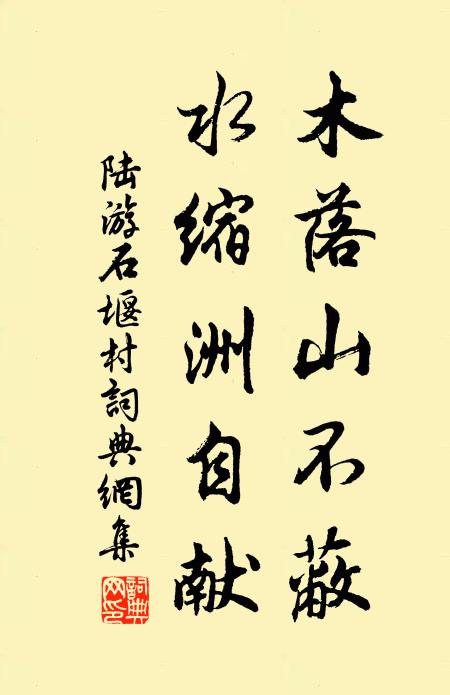 木落山不蔽
水缩洲自献
陆游石堰村詞典網集
詞典網印